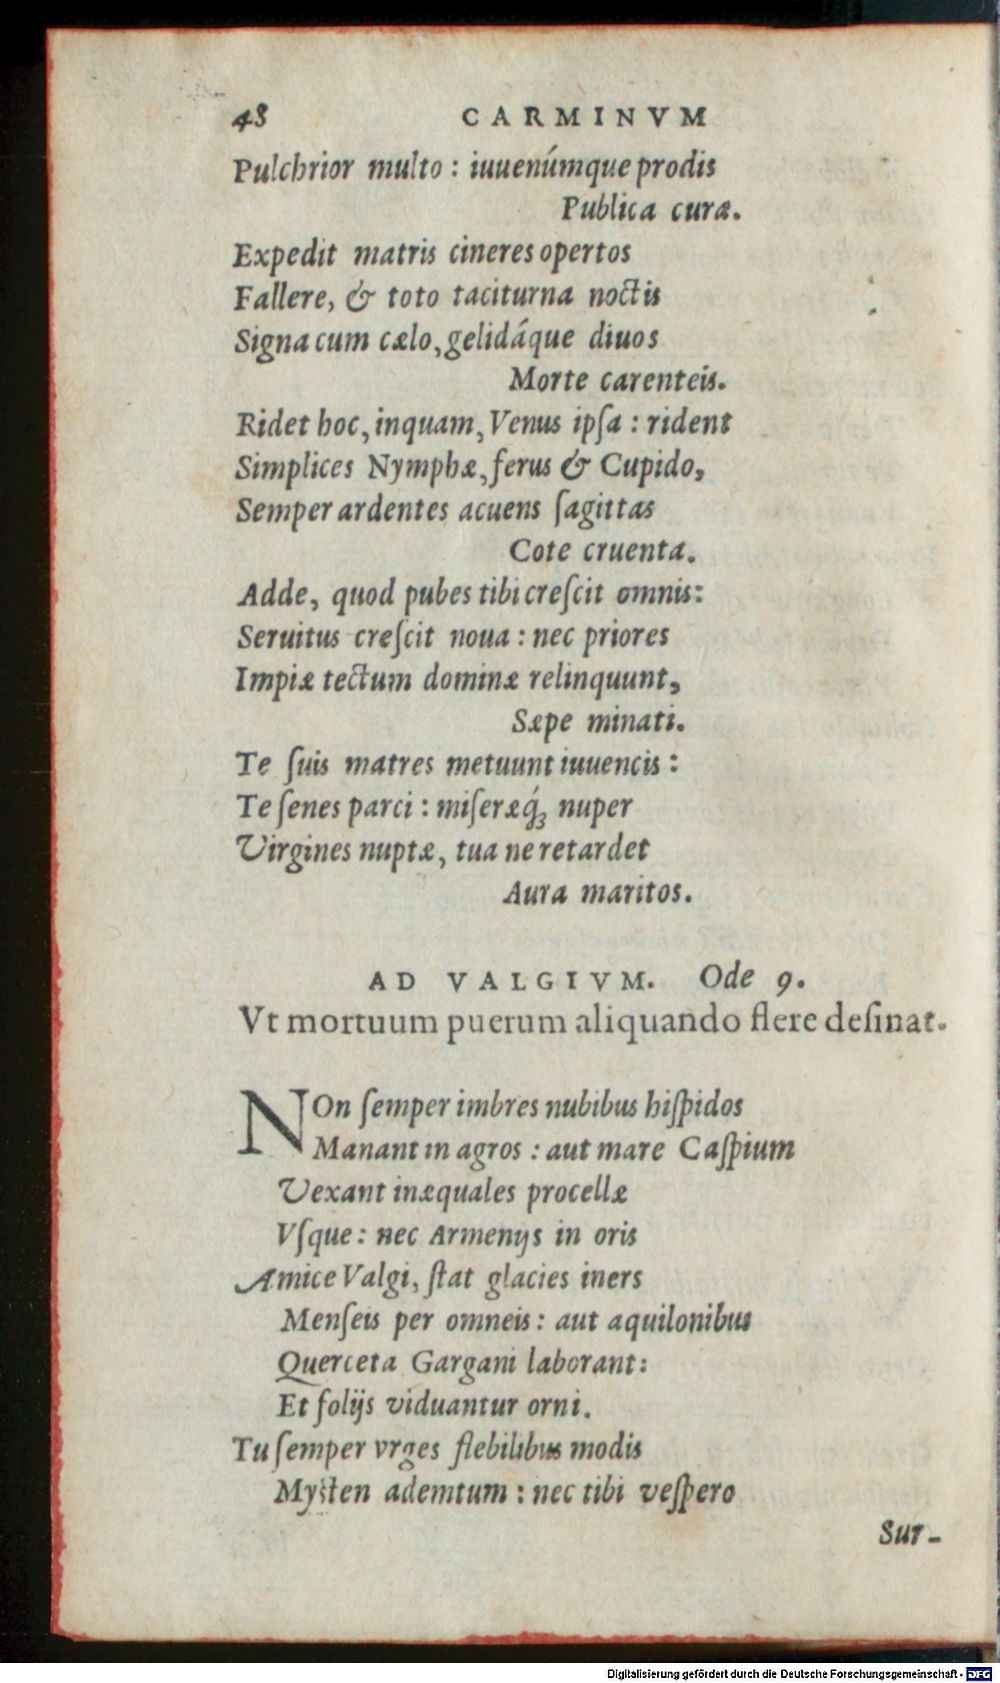 48 CARMINVM
Pulchrior multo : iuuenúmque prodis
Publica cura.
Expedit matris cineres opertos
Fallere, & toto taciturna noctis
Signa cum cælo, gelidáque diuos
Morte carenteis.
Ridet hoc, inquam, Venus ipſa : rident
Simplices Nymphæ, ferus & Cupido,
Semper ardentes acuens ſagittas
Cote cruenta.
Adde, quod pubes tibi creſcit omnis:
Seruitus creſcit noua : nec priores
Impiæ tectum dominæ relinquunt,
Sæpe minati.
Te ſuis matres metuunt iuuencis :
Te ſenes parci : miſeræq́ꝫ nuper
Virgines nuptæ, tua ne retardet
Aura maritos.
AD VALGIVM. Ode 9.
Vt mortuum puerum aliquando flere deſinat.
NOn ſemper imbres nubibus hiſpidos
Manant in agros : aut mare Caſpium
Vexant inæquales procellæ
Vſque : nec Armenijs in oris
Amice Valgi, ſtat glacies iners
Menſeis per omneis : aut aquilonibus
Querceta Gargani laborant:
Et folijs viduantur orni.
Tu ſemper vrges flebilibus modis
Myſten ademtum : nec tibi veſpero
Sur-
Digitalisierung gefördert durch die Deutsche Forschungsgemeinschaft - DFG